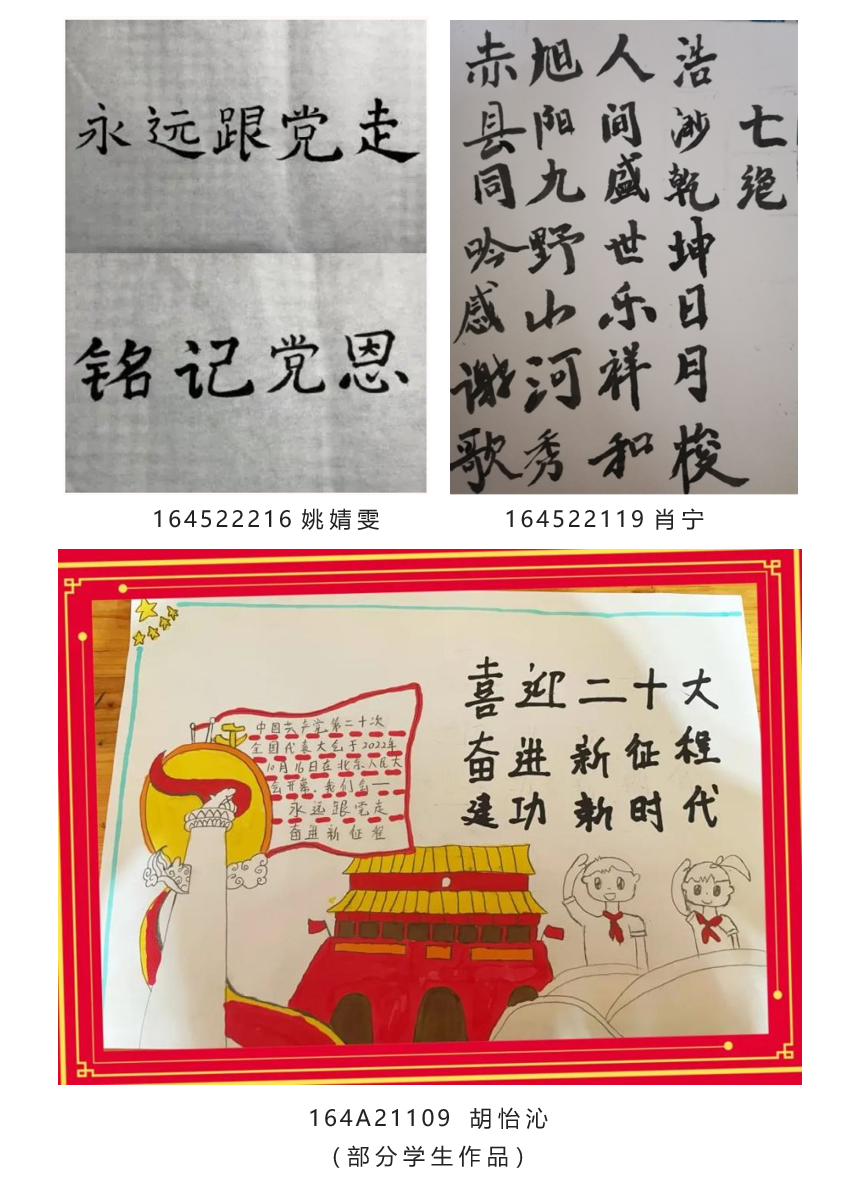 永远跟党走
铭记党恩
七绝
浩渺乾坤日月梭
人间盛世乐祥和
旭阳九野山河秀
赤县同吟感谢歌
164522216姚婧雯
164522119肖宁
中国共产党第二十次
全国代表大会于2022年
10月16日在北京人民大
会开幕，我们会——
永远跟党走
奋进新征程
喜迎二十大
奋进新征程
建功新时代
164A21109 胡怡沁
(部分学生作品)